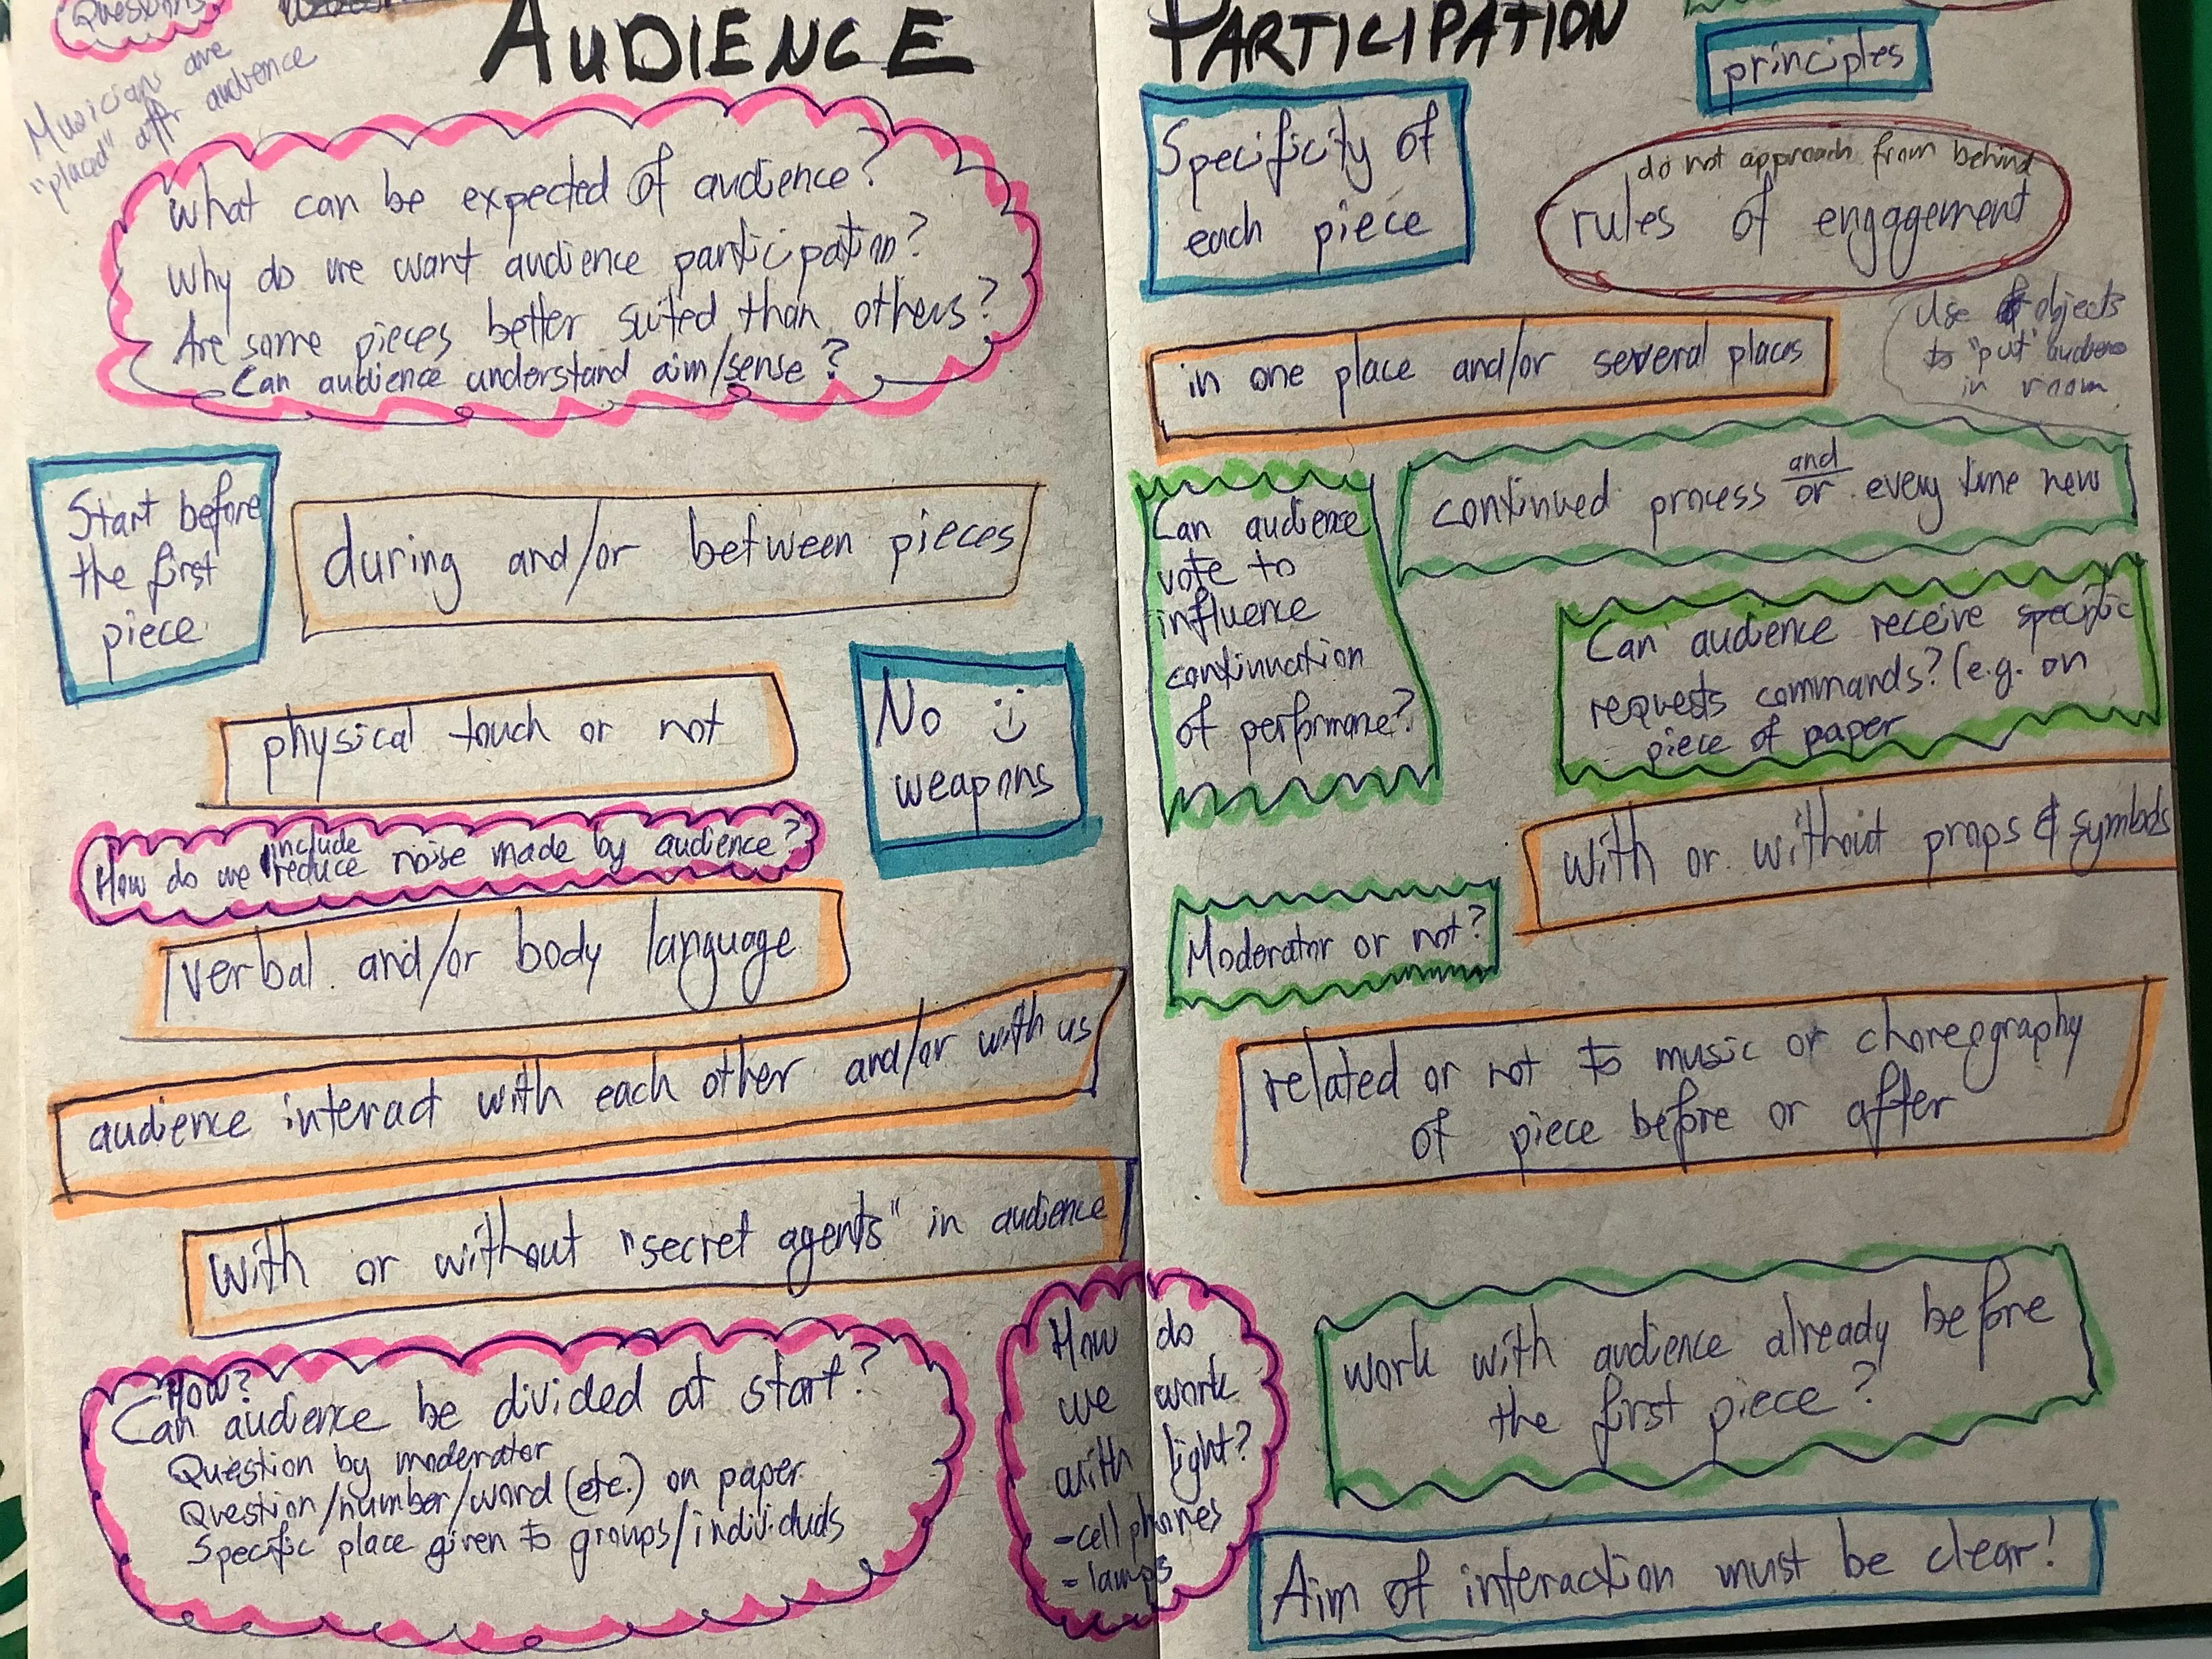 Questions
Musician are
"placed" aftr audience
AUDIENCE
What can be expected of audience?
Why do we want audience participation?
Are some pieces better suited than others?
Can audience understand aim/sense?
Start before
the first
piece
during and/or between pieces
physical touch or not
No
weapons
include
How do we reduce noise made by audience?
verbal and/or body language
audience interact with each other and/or with us
with or without "secret agents" in audience
How?
Can audience be divided at start?
Question by moderator
Question/number/word (etc.) on paper
Specific place given to groups/individuals
How do
we work
with light?
- cell phones
- lamps
PARTICIPATION
principles
Specificity of
each piece
do not approach from behind
rules of engagement
in one place and/or several places
Use of objects
to "put" audience
in room
continued process and/or every time new
Can audience
vote to
influence
continuation
of performance?
Can audience receive specific
requests commands? (e.g. on
piece of paper
with or without props & symbols
Moderator or not?
related or not to music or choreography
of piece before or after
work with audience already before
the first piece?
Aim of interaction must be clear!